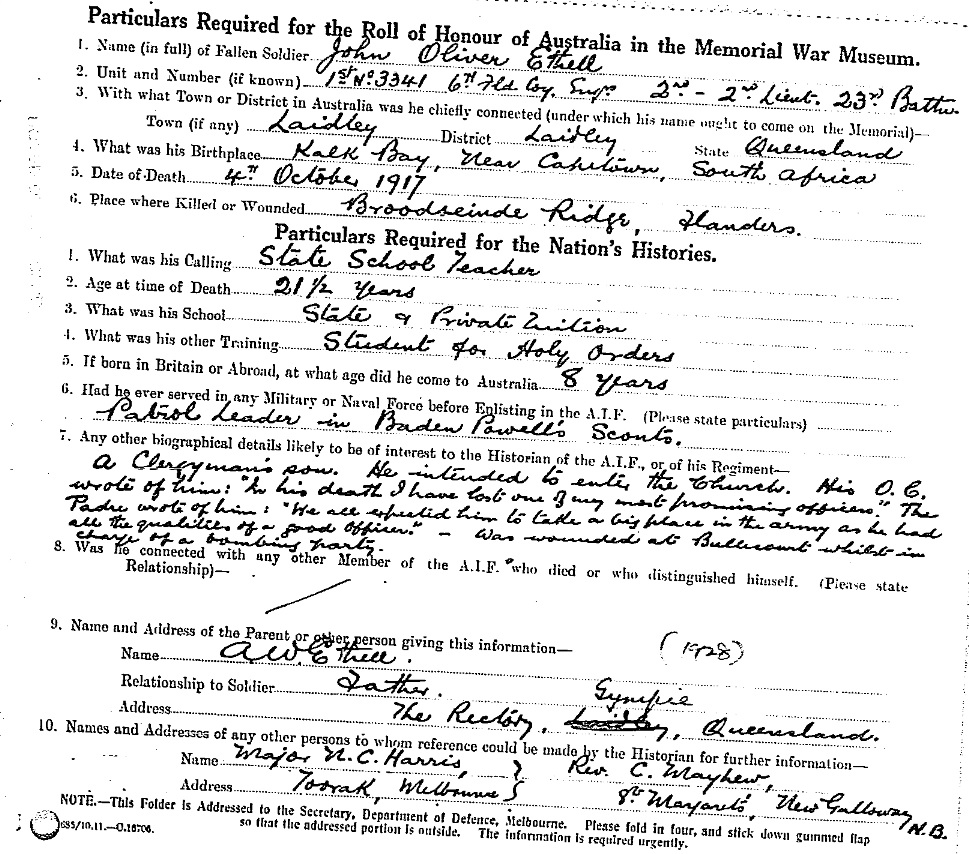 Particulars Required for the Roll of Honour of Australia in the Memorial War Museum.
1. Name (in full) of Fallen Soldier John Oliver Ethell
2. Unit and Number (if known) 1st No 3341 6th Fld Coy. Engrs 2nd - 2nd Lieut. 23rd Battn
3. With what Town or District in Australia was he chiefly connected (under which his name ought to come on the Memorial)—
Town (if any) Laidley District Laidley State Queensland
4. What was his Birthplace Kalk Bay, Near Capetown, South Africa
5. Date of Death 4th October 1917
6. Place where Killed or Wounded Broodseinde Ridge, Flanders.
Particulars Required for the Nation's Histories.
1. What was his Calling State School Teacher
2. Age at time of Death 21 1/2 Years
3. What was his School State & Private Tuition
4. What was his other Training Student for Holy Orders
5. If born in Britain or Abroad, at what age did he come to Australia 8 Years
6. Had he ever served in any Military or Naval Force before Enlisting in the A.I.F. (Please state particulars)
Patrol Leader in Baden Powell's Scouts.
7. Any other biographical details likely to be of interest to the Historian of the A.I.F., or of his Regiment—
A Clergyman's son. He intended to enter the Church. His O.C.
wrote of him: "In his death I have lost one of my most promising officers." The
Padre wrote of him: "We all expected him to take a big place in the army as he had
all the qualities of a good officer." - Was wounded at Bullecourt whilst in
charge of a bombing party.
8. Was he connected with any other Member of the A.I.F. who died or who distinguished himself. (Please state
Relationship)—
9. Name and Address of the Parent or other person giving this information—
(1928)
Name A W Ethell.
Relationship to Soldier Father.
Gympie
Address The Rectory, Laidley, Queensland.
10. Names and Addresses of any other persons to whom reference could be made by the Historian for further information—
Name Major N. C. Harris, } Rev. C. Mayhew,
Address Toorak, Melbourne } St Margaret's, New Galloway, N.B.
NOTE.—This Folder is Addressed to the Secretary, Department of Defence, Melbourne. Please fold in four, and stick down gummed flap
so that the addressed portion is outside. The information is required urgently.
C.16706.